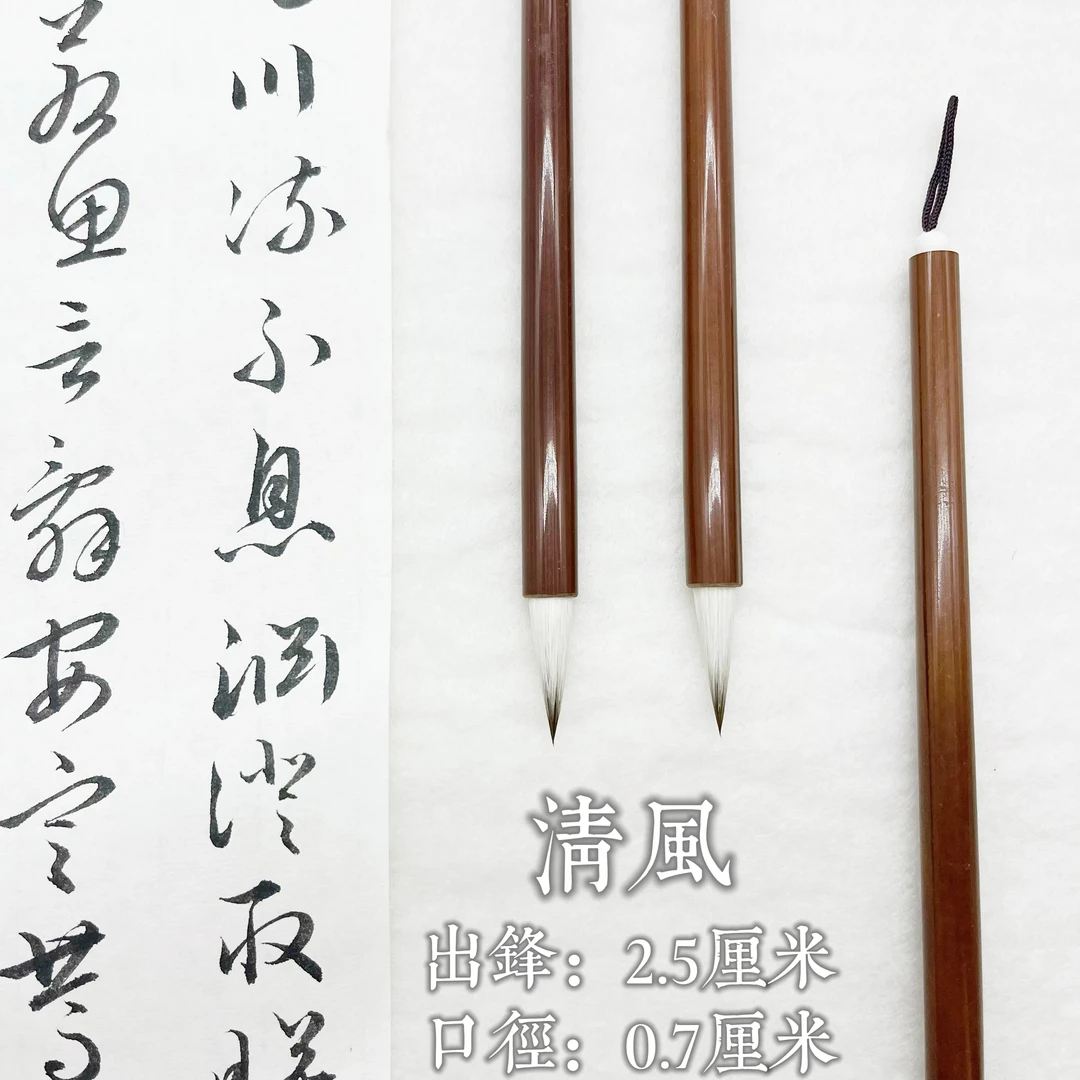 川流不息淵澄取暎
若思言辭安定篤
清風
出鋒：2.5厘米
口徑：0.7厘米